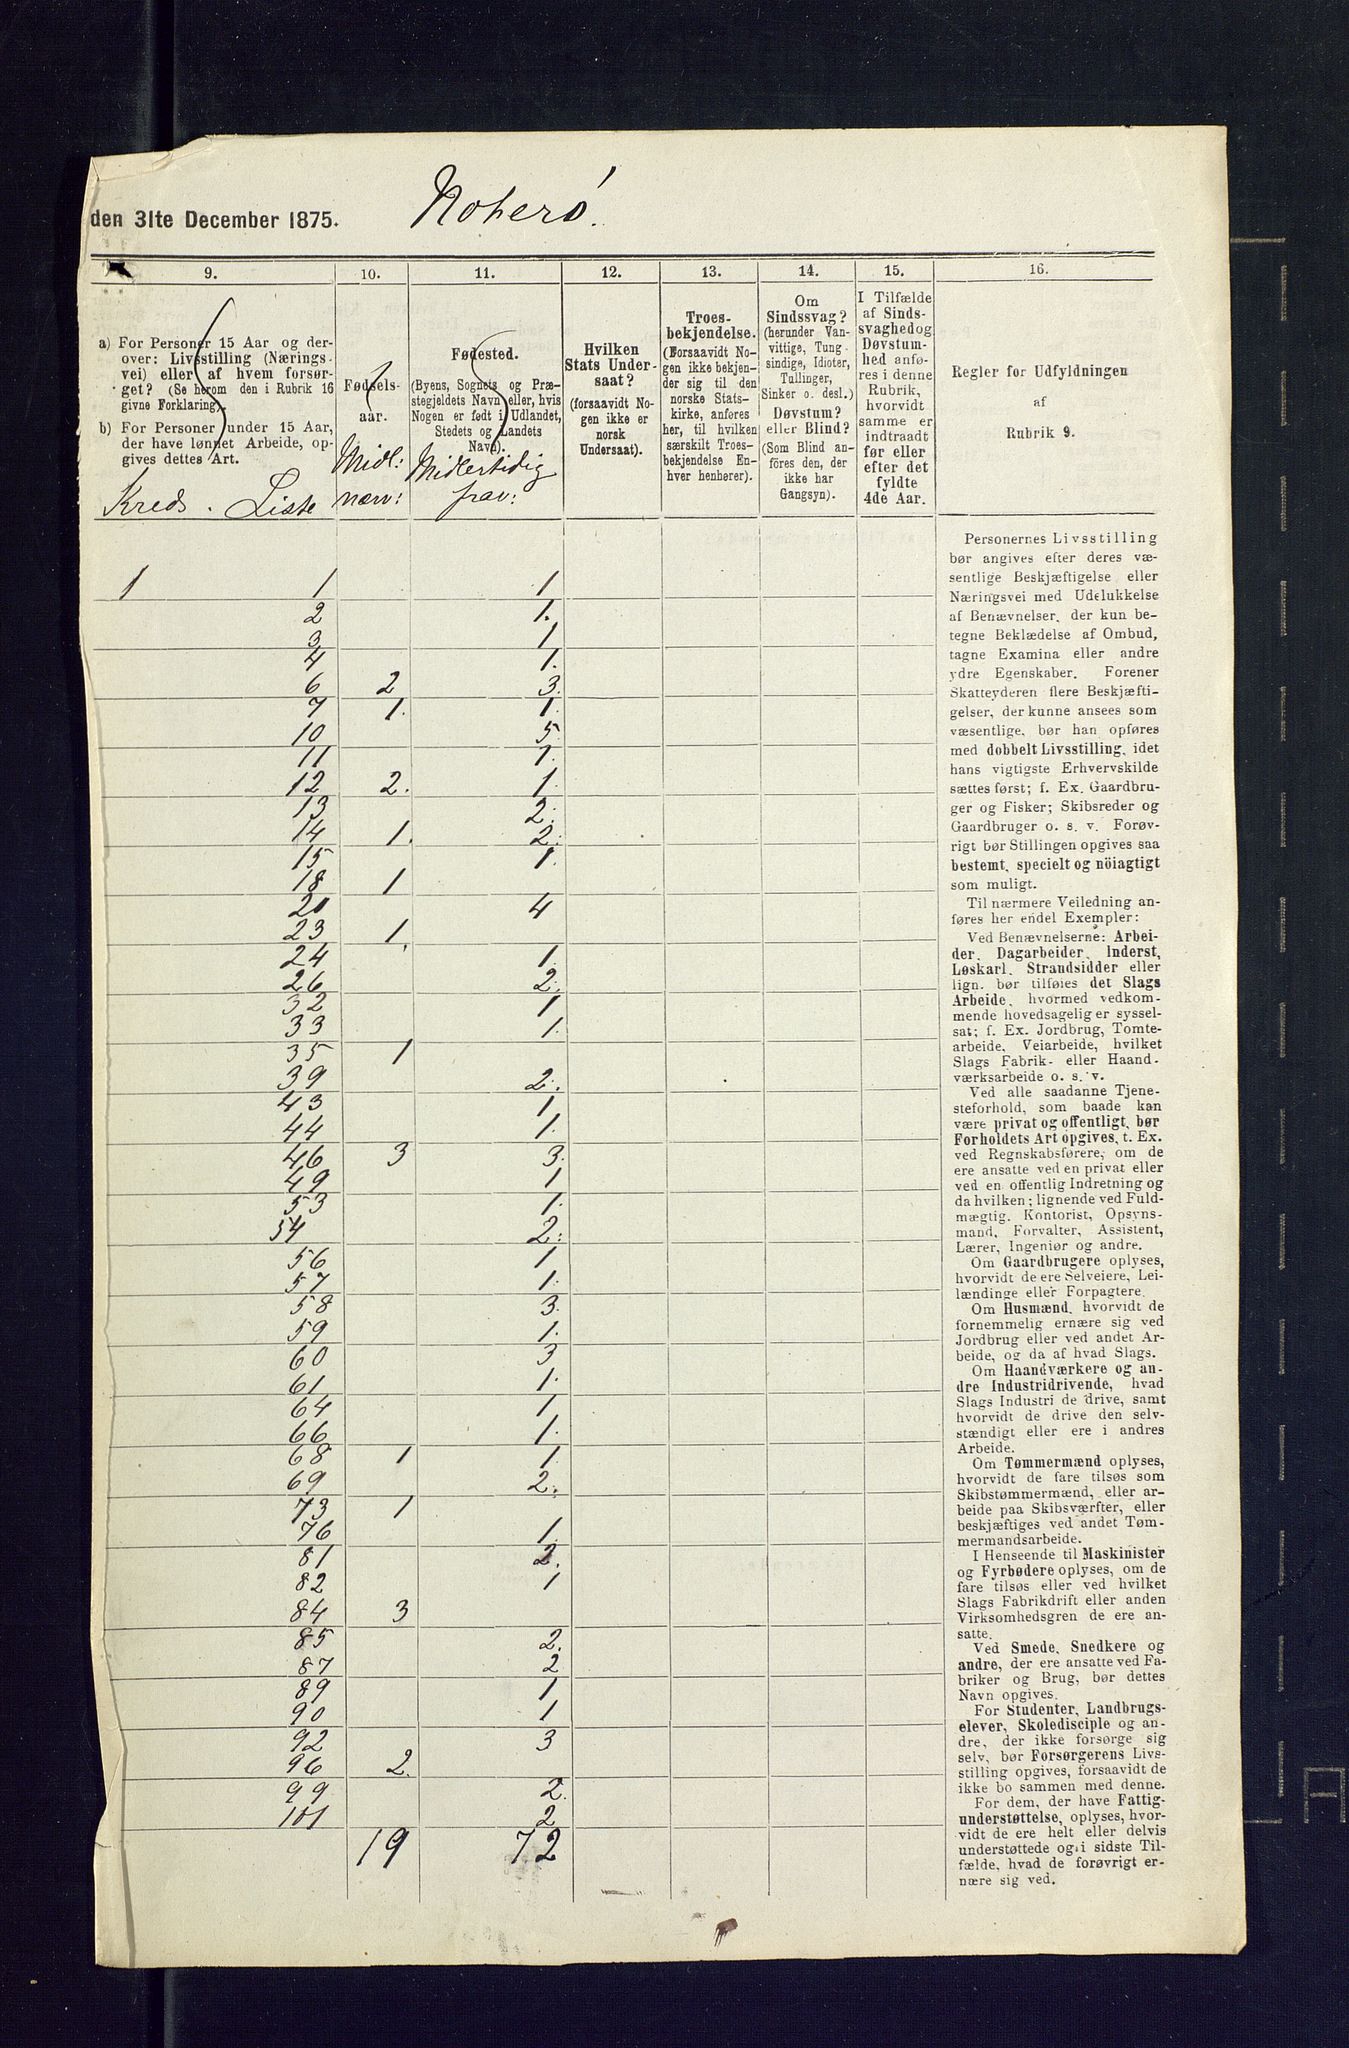 den 31te December 1875. Noterø.
9. 10. 11. 12. 13. 14. 15. 16.
a) For Personer 15 Aar og der-
over: Livsstilling (Nærings-
vei) eller af hvem forsør-
get? (Se herom den i Rubrik 16
givne Forklaring).
b) For Personer under 15 Aar,
der have lønnet Arbeide, op-
gives dettes Art.
Kreds. Liste
Fødsels-
aar.
Midl:
nærv:
Fødested.
(Byens, Sognets og Præ-
stegjeldets Navn eller, hvis
Nogen er født i Udlandet,
Stedets og Landets
Navn).
Midlertidig
frav:
Hvilken
Stats Under-
saat?
(forsaavidt No-
gen ikke er
norsk
Undersaat).
Troes-
bekjendelse.
(Forsaavidt No-
gen ikke bekjen-
der sig til den
norske Stats-
kirke, anføres
her, til hvilken
særskilt Troes-
bekjendelse En-
hver henhører).
Om
Sindssvag?
(herunder Van-
vittige, Tung-
sindige, Idioter,
Tullinger,
Sinker o. desl.)
Døvstum?
eller Blind?
(Som Blind an-
føres den, der
ikke har
Gangsyn).
I Tilfælde
af Sinds-
svaghed og
Døvstum-
hed anfø-
res i denne
Rubrik,
hvorvidt
samme er
indtraadt
før eller
efter det
fyldte
4de Aar.
Regler for Udfyldningen
af
Rubrik 9.
1 1 1
2 1.
3 1
4 1.
6 2 3.
7 1. 1.
10 5
11 1.
12 2. 1.
13 2.
14 1. 2.
15 1.
18 1
20 4
23 1.
24 1.
26 2.
32 1
33 1.
35 1
39 2.
43 1
44 1.
46 3 3.
49 1
53 1.
54 2.
56 1
57 1.
58 3.
59 1.
60 3
61 1.
64 1
66 1.
68 1 1.
69 2.
73 1
76 1.
81 2.
82 1
84 3
85 2.
87 2
89 1
90 1
92 3
96 2.
99 2.
101 2
19 72
Personernes Livsstilling
bør angives efter deres væ-
sentlige Beskjæftigelse eller
Næringsvei med Udelukkelse
af Benævnelser, der kun be-
tegne Beklædelse af Ombud,
tagne Examina eller andre
ydre Egenskaber. Forener
Skatteyderen flere Beskjæfti-
gelser, der kunne ansees som
væsentlige, bør han opføres
med dobbelt Livsstilling, idet
hans vigtigste Erhvervskilde
sættes først; f. Ex. Gaardbru-
ger og Fisker; Skibsreder og
Gaardbruger o. s. v. Forøv-
rigt bør Stillingen opgives saa
bestemt, specielt og nöiagtigt
som muligt.
Til nærmere Veiledning an-
føres her endel Exempler:
Ved Benævnelserne: Arbei-
der, Dagarbeider, Inderst,
Løskarl, Strandsidder eller
lign. bør tilføies det Slags
Arbeide, hvormed vedkom-
mende hovedsagelig er syssel-
sat; f. Ex. Jordbrug, Tomte-
arbeide, Veiarbeide, hvilket
Slags Fabrik- eller Haand-
værksarbeide o. s. v.
Ved alle saadanne Tjene-
steforhold, som baade kan
være privat og offentligt, bør
Forholdets Art opgives, t. Ex.
ved Regnskabsførere, om de
ere ansatte ved en privat eller
ved en offentlig Indretning og
da hvilken; lignende ved Fuld-
mægtig, Kontorist, Opsyns-
mand, Forvalter, Assistent,
Lærer, Ingeniør og andre.
Om Gaardbrugere oplyses,
hvorvidt de ere Selveiere, Lei-
lændinge eller Forpagtere.
Om Husmænd, hvorvidt de
fornemmelig ernære sig ved
Jordbrug eller ved andet Ar-
beide, og da af hvad Slags.
Om Haandværkere og an-
dre Industridrivende, hvad
Slags Industri de drive, samt
hvorvidt de drive den selv-
stændigt eller ere i andres
Arbeide.
Om Tømmermænd oplyses,
hvorvidt de fare tilsøs som
Skibstømmermænd, eller ar-
beide paa Skibsværfter, eller
beskjæftiges ved andet Tøm-
mermandsarbeide.
I Henseende til Maskinister
og Fyrbødere oplyses, om de
fare tilsøs eller ved hvilket
Slags Fabrikdrift eller anden
Virksomhedsgren de ere an-
satte.
Ved Smede, Snedkere og
andre, der ere ansatte ved Fa-
briker og Brug, bør dettes
Navn opgives.
For Studenter, Landbrugs-
elever, Skoledisciple og an-
dre, der ikke forsørge sig
selv, bør Forsørgerens Livs-
stilling opgives, forsaavidt de
ikke bo sammen med denne.
For dem, der have Fattig-
understøttelse, oplyses, hvor-
vidt de ere helt eller delvis
understøttede og i sidste Til-
fælde, hvad de forøvrigt er-
nære sig ved.